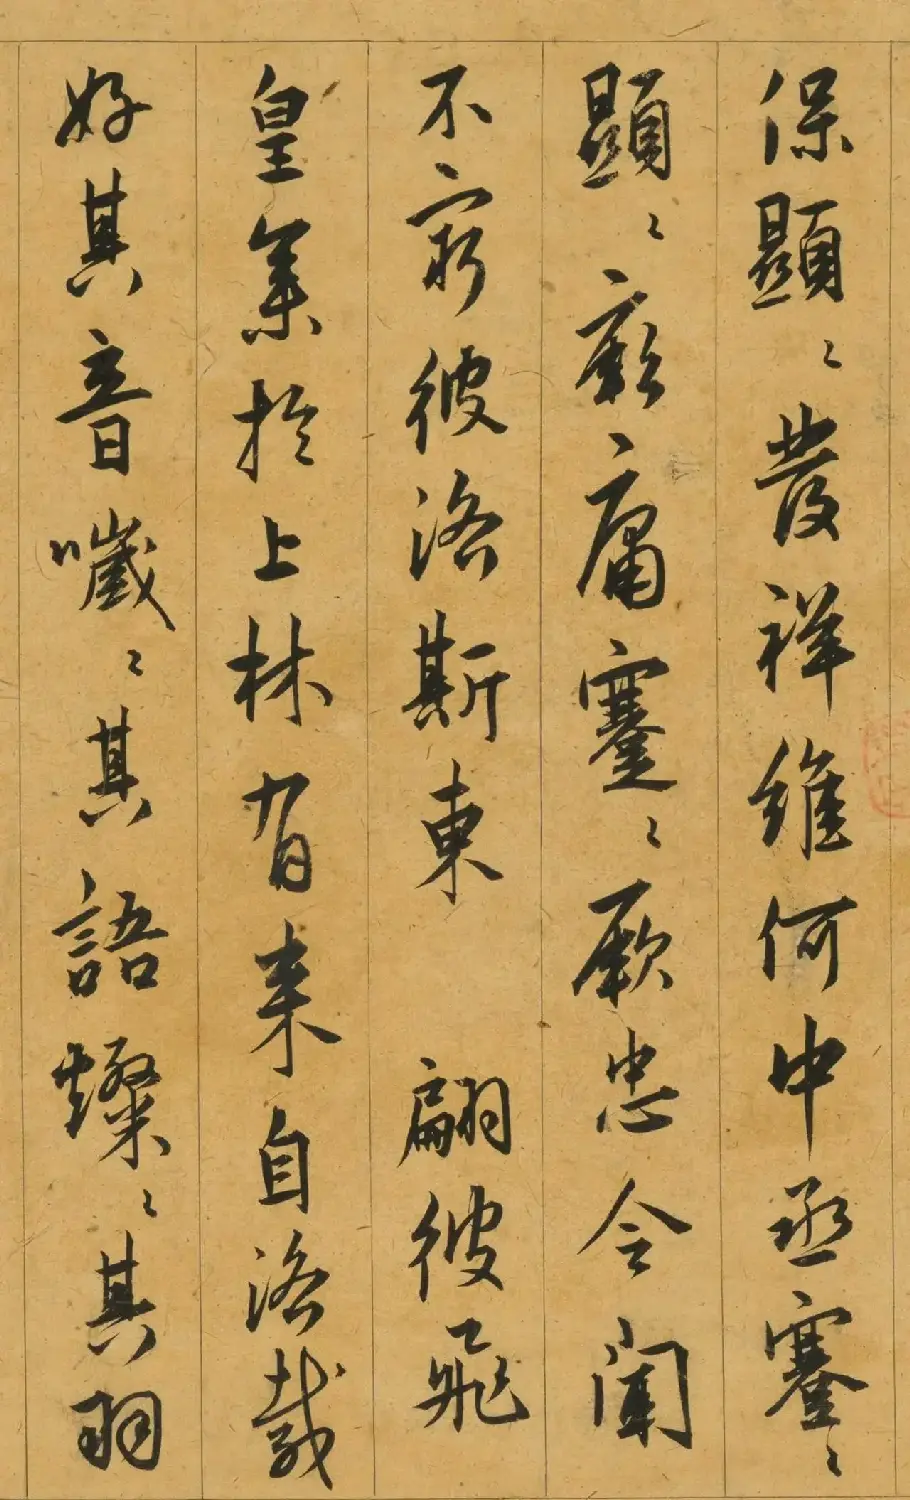 保顯〻發祥維何中丞蹇〻
顯〻厥庸蹇〻厥忠令聞
不窮彼洛斯東 翩彼飛
皇集於上林有来自洛載
好其音噦〻其語燦〻其羽